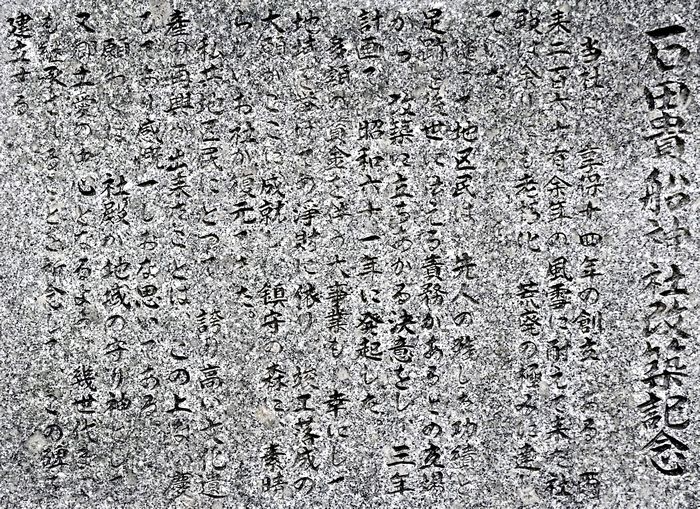 石田貴船神社改築記念
当社は 享保十四年の創立である 爾
来二百六十有余年の風雪に耐えて来た社
殿は余りにも老朽化 荒廃の極みに達し
ていた
従って地区民は 先人の残した功績と
足跡を後世に伝える責務があるとの立場
から 改築に立ちあがる決意をし 三年
計画で 昭和六十一年に発起した
多額の資金を伴う大事業も 幸にして
地域を挙げての浄財に依り 竣工落成の
大願がここに成就し 鎮守の森に 素晴
らしいお社が復元できた
私共地区民にとって 誇り高い文化遺
産の再興が出来たことは この上ない慶
びであり感慨一しおな思いである
願わくは 社殿が地域の守り神として
又郷土愛の中心となるよう 幾世代までも
も継承されることを祈念して この碑を
建立する